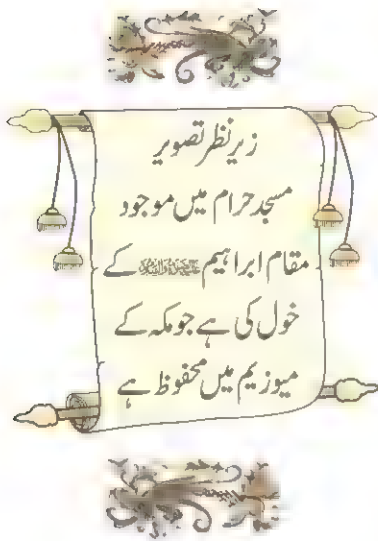 زیر نظر تصویر
مسجد حرام میں موجود
مقام ابراہیم کے
خول کی ہے جو مکہ کے
میوزیم میں محفوظ ہے